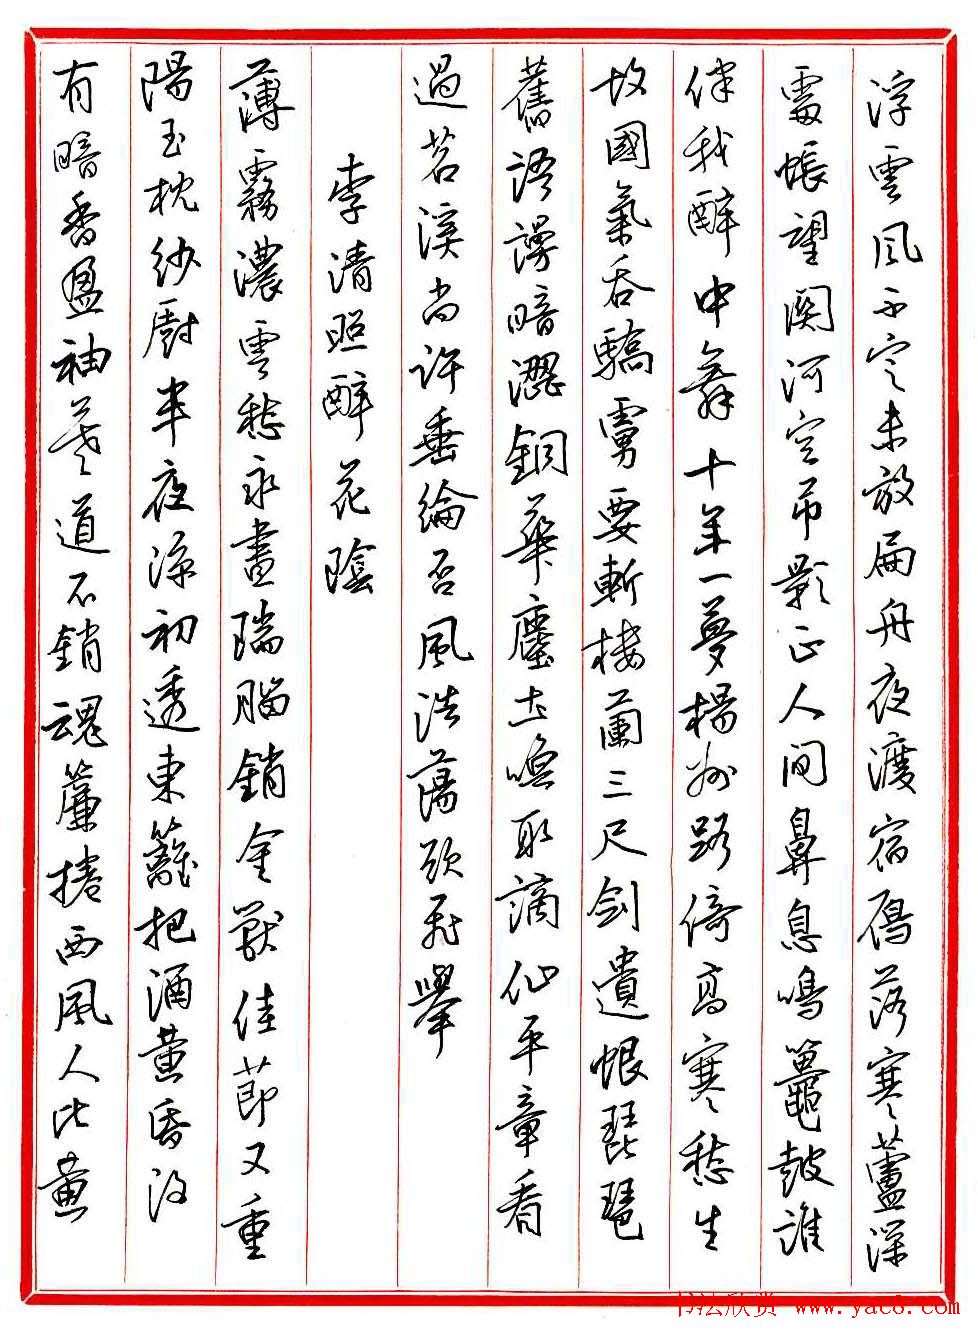 浮雲風不定未放扁舟夜渡宿雁落寒蘆深
處悵望關河空吊影正人間鼻息鳴鼉鼓誰
伴我醉中舞十年一夢楊州路倚高寒愁生
故國氣吞驕虜要斬樓蘭三尺劍遺恨琵琶
舊語謾暗澀銅華塵土喚取謫仙平章看
過苕溪尚許垂綸否風浩蕩欲飛舉
李清照醉花陰
薄霧濃雲愁永晝瑞腦銷金獸佳節又重
陽玉枕紗廚半夜涼初透東籬把酒黃昏後
有暗香盈袖莫道不銷魂簾捲西風人比黃
书法欣赏 www.yac8.com